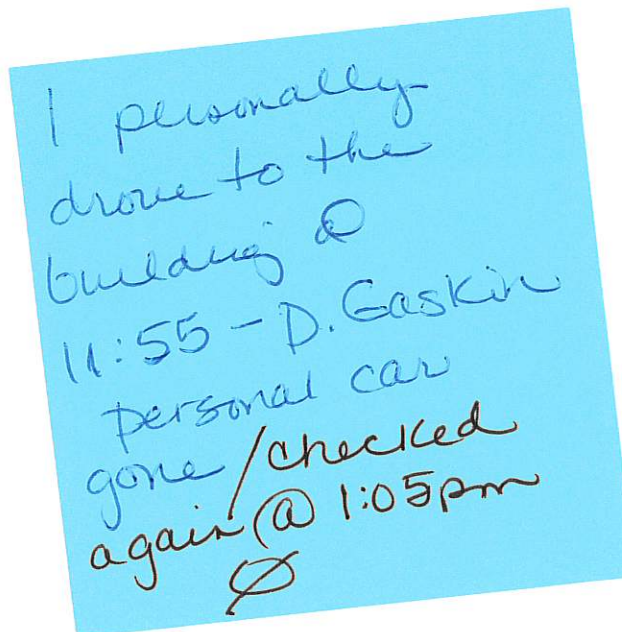 I personally
drove to the
building @
11:55 - D. Gaskin
personal car
gone / checked
again @ 1:05pm
Ø